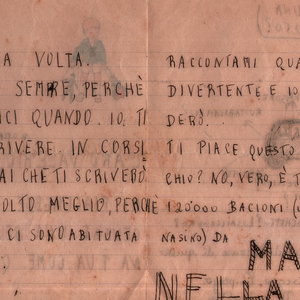 A VOLTA.
SEMPRE, PERCHÈ
ICI QUANDO. IO. TI
RIVERE IN CORSI
AI CHE TI SCRIVERÒ
OLTO MEGLIO, PERCHÈ
CI SONO ABITUATA
RACCONTAMI QUA
DIVERTENTE E IO
DERÒ...
TI PIACE QUESTO
CHIO? NO, VERO, È T
120'000 BACIONI (
NASINO) DA
MA
NELLA